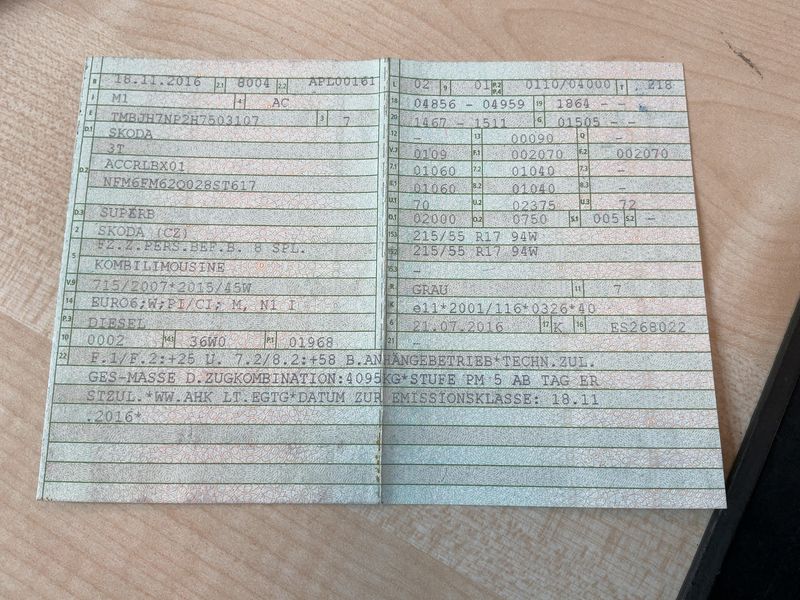 B 18.11.2016 2.1 8004 2.2 APL00161
J M1 4 AC
E TMBJH7NP2H7503107 3 7
D.1 SKODA
3T
D.2 ACCRLBX01
NFM6FM62Q028ST617
D.3 SUPERB
2 SKODA (CZ)
5 FZ.Z.PERS.BEF.B. 8 SPL.
KOMBILIMOUSINE
V.9 715/2007*2015/45W
14 EURO6;W;PI/CI; M, N1 I
P.3 DIESEL
10 0002 14.1 36W0 P.1 01968
L 02 9 01 P.2 P.4 0110/04000 T 218
18 04856 - 04959 19 1864 - -
20 1467 - 1511 G 01505 - -
12 - 13 00090 Q -
V.7 0109 F.1 002070 F.2 002070
7.1 01060 7.2 01040 7.3 -
8.1 01060 8.2 01040 8.3 -
U.1 70 U.2 02375 U.3 72
O.1 02000 O.2 0750 S.1 005 S.2 -
15.1 215/55 R17 94W
15.2 215/55 R17 94W
15.3 -
R GRAU 11 7
K e11*2001/116*0326*40
6 21.07.2016 17 K 16 ES268022
21 -
22 F.1/F.2:+25 U. 7.2/8.2:+58 B.ANHÄNGEBETRIEB*TECHN.ZUL.
GES-MASSE D.ZUGKOMBINATION:4095KG*STUFE PM 5 AB TAG ER
STZUL.*WW.AHK LT.EGTG*DATUM ZUR EMISSIONSKLASSE: 18.11
.2016*